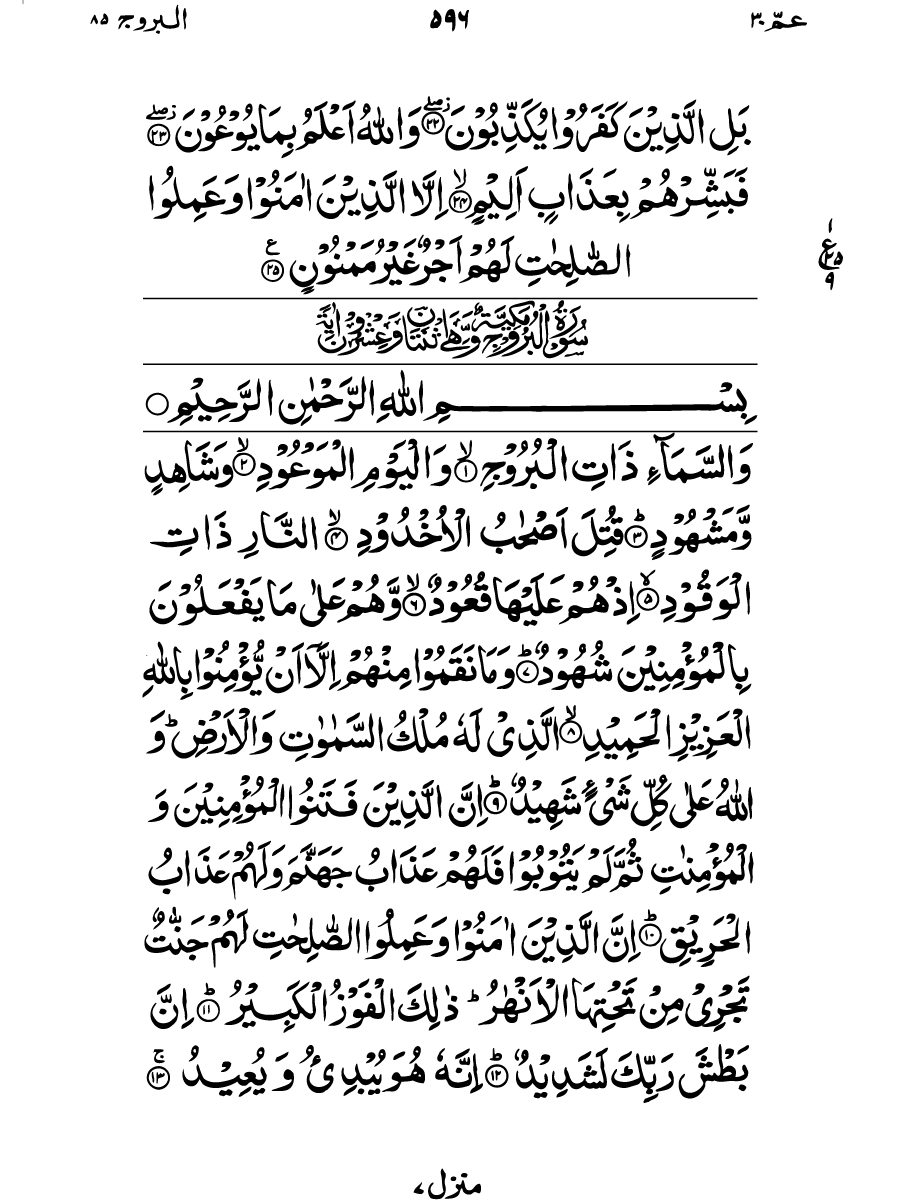 عمّ ۳۰ ۵۹۶ البروج ۸۵
بَلِ الَّذِیْنَ كَفَرُوْا یُكَذِّبُوْنَ ﴿۲۲﴾ وَاللّٰهُ اَعْلَمُ بِمَا یُوْعُوْنَ ﴿۲۳﴾
فَبَشِّرْهُمْ بِعَذَابٍ اَلِیْمٍ ﴿۲۴﴾ اِلَّا الَّذِیْنَ اٰمَنُوْا وَعَمِلُوا
الصّٰلِحٰتِ لَهُمْ اَجْرٌ غَیْرُ مَمْنُوْنٍ ﴿۲۵﴾ ع
۱
ع ۲۵
۹
سُوْرَةُ الْبُرُوْجِ مَكِّیَّةٌ وَّهِیَ ثِنْتَانِ وَعِشْرُوْنَ اٰیَةً
بِسْمِ اللّٰهِ الرَّحْمٰنِ الرَّحِیْمِ ○
وَالسَّمَآءِ ذَاتِ الْبُرُوْجِ ﴿۱﴾ وَالْیَوْمِ الْمَوْعُوْدِ ﴿۲﴾ وَشَاهِدٍ
وَّمَشْهُوْدٍ ﴿۳﴾ قُتِلَ اَصْحٰبُ الْاُخْدُوْدِ ﴿۴﴾ النَّارِ ذَاتِ
الْوَقُوْدِ ﴿۵﴾ اِذْ هُمْ عَلَیْهَا قُعُوْدٌ ﴿۶﴾ وَّهُمْ عَلٰی مَا یَفْعَلُوْنَ
بِالْمُؤْمِنِیْنَ شُهُوْدٌ ﴿۷﴾ وَمَا نَقَمُوْا مِنْهُمْ اِلَّاۤ اَنْ یُّؤْمِنُوْا بِاللّٰهِ
الْعَزِیْزِ الْحَمِیْدِ ﴿۸﴾ الَّذِیْ لَهٗ مُلْكُ السَّمٰوٰتِ وَالْاَرْضِ ؕ وَ
اللّٰهُ عَلٰی كُلِّ شَیْءٍ شَهِیْدٌ ﴿۹﴾ اِنَّ الَّذِیْنَ فَتَنُوا الْمُؤْمِنِیْنَ وَ
الْمُؤْمِنٰتِ ثُمَّ لَمْ یَتُوْبُوْا فَلَهُمْ عَذَابُ جَهَنَّمَ وَلَهُمْ عَذَابُ
الْحَرِیْقِ ﴿۱۰﴾ اِنَّ الَّذِیْنَ اٰمَنُوْا وَعَمِلُوا الصّٰلِحٰتِ لَهُمْ جَنّٰتٌ
تَجْرِیْ مِنْ تَحْتِهَا الْاَنْهٰرُ ؕ ذٰلِكَ الْفَوْزُ الْكَبِیْرُ ﴿۱۱﴾ اِنَّ
بَطْشَ رَبِّكَ لَشَدِیْدٌ ﴿۱۲﴾ اِنَّهٗ هُوَ یُبْدِئُ وَیُعِیْدُ ﴿۱۳﴾
منزل ۷